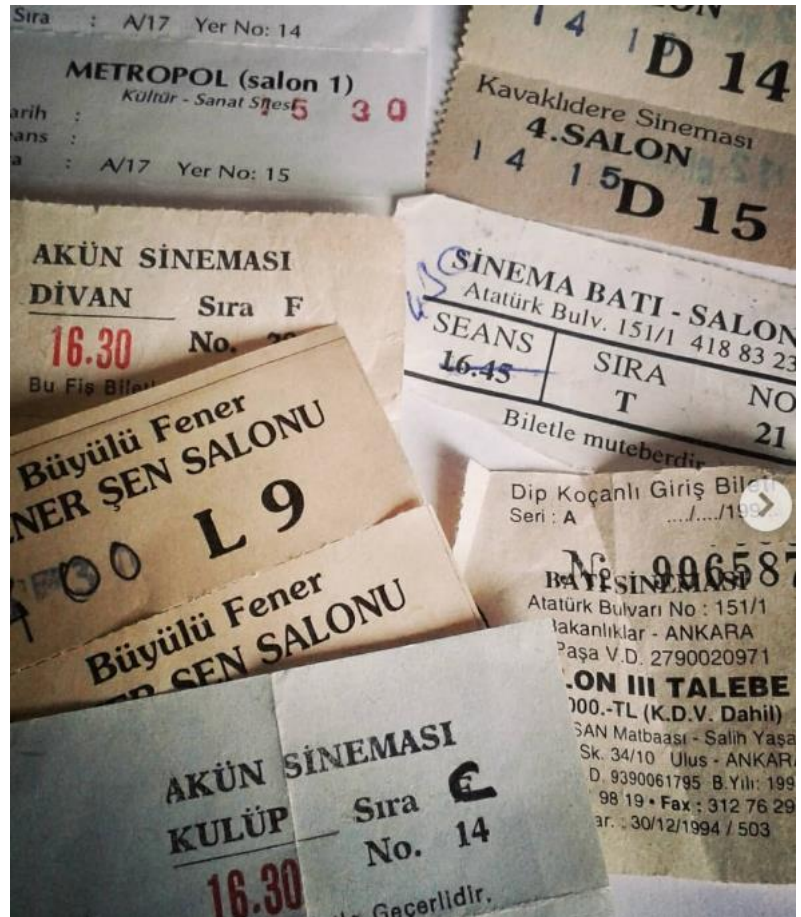 Sıra : A/17 Yer No: 14
METROPOL (salon 1)
Kültür - Sanat Sitesi
15 30
arih :
ans :
a : A/17 Yer No: 15
14 15
D 14
Kavaklıdere Sineması
4.SALON
14 15
D 15
AKÜN SİNEMASI
DİVAN Sıra F
16.30 No.
Bu Fiş
SİNEMA BATI - SALON
Atatürk Bulv. 151/1 418 83 23
SEANS SIRA NO
16.45 T 21
Biletle muteberdir
Büyülü Fener
NER ŞEN SALONU
L 9
00
Büyülü Fener
ER ŞEN SALONU
Dip Koçanlı Giriş Bileti
Seri : A ..../..../199
No 906587
BATI SİNEMASI
Atatürk Bulvarı No : 151/1
Bakanlıklar - ANKARA
Paşa V.D. 2790020971
LON III TALEBE
000.-TL (K.D.V. Dahil)
SAN Matbaası - Salih Yaşa
Sk. 34/10 Ulus - ANKARA
D. 9390061795 B.Yılı: 199
98 19 • Fax : 312 76 29
ar. : 30/12/1994 / 503
AKÜN SİNEMASI
KULÜP Sıra E
16.30 No. 14
Geçerlidir.